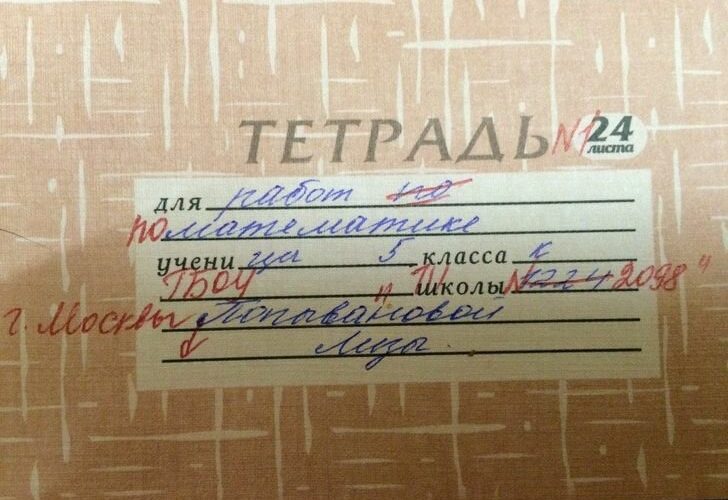 ТЕТРАДЬ N1 24
листа
для работ по
по математике
учени ца 5 класса к
ГБОУ " Школы № 1224 2098"
г. Москвы Попывановой
Лизы